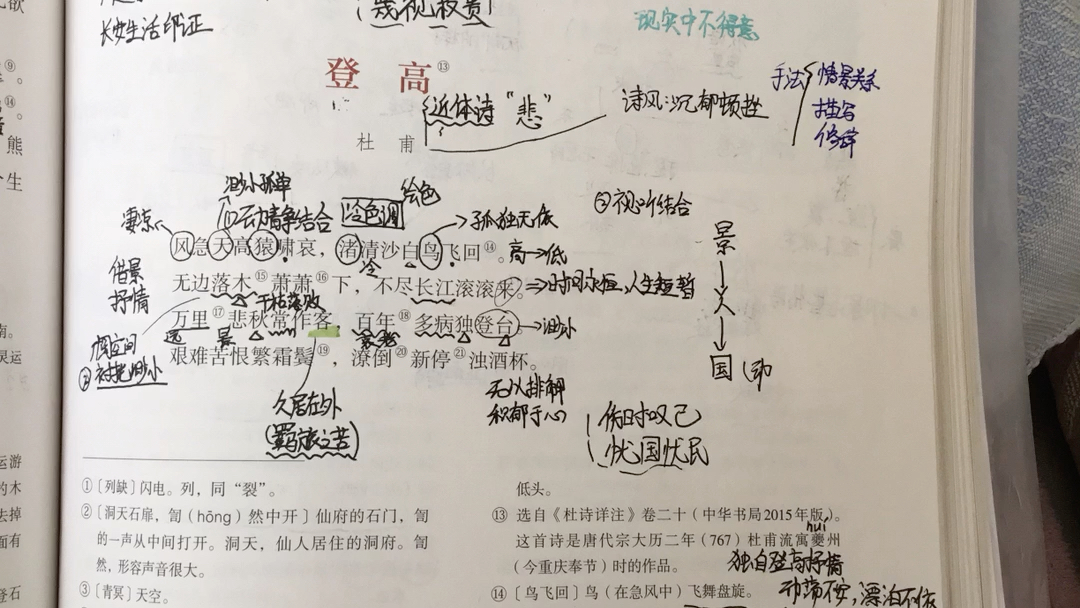 长安生活印证
(蔑视权贵)
现实中不得意
登 高⑬
近体诗 “悲”
诗风:沉郁顿挫
手法
情景关系
描写
修辞
杜 甫
渺小孤单
绘色
凄凉
动静结合
冷色调
孤独无依
②视听结合
风急天高猿啸哀，渚清沙白鸟飞回⑭。
高→低
冷
借景
抒情
无边落木⑮萧萧⑯下，不尽长江滚滚来。
⇒时间永恒,人生短暂
万里⑰悲秋常作客，百年⑱多病独登台
→渺小
远 景
衰老
③衬托渺小
艰难苦恨繁霜鬓⑲，潦倒⑳新停㉑浊酒杯。
景
↓
人
↓
国
久居在外
(羁旅之苦)
无以排解
积郁于心
伤时叹己
忧国忧民
①〔列缺〕闪电。列，同“裂”。
②〔洞天石扉，訇（hōng）然中开〕仙府的石门，訇
的一声从中间打开。洞天，仙人居住的洞府。訇
然，形容声音很大。
③〔青冥〕天空。
低头。
⑬ 选自《杜诗详注》卷二十（中华书局2015年版）。
huī
这首诗是唐代宗大历二年（767）杜甫流寓夔州
（今重庆奉节）时的作品。
独自登高抒情
⑭〔鸟飞回〕鸟（在急风中）飞舞盘旋。
动荡不安,漂泊不依